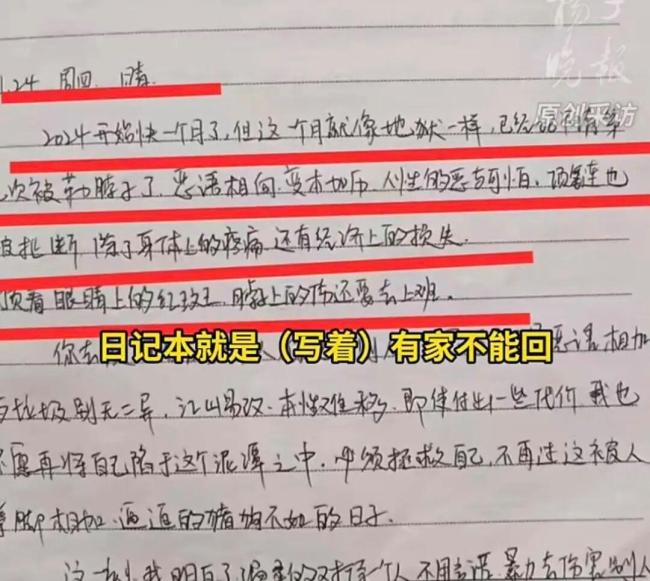 扬子
晚报
原创采访
1.24 周四 晴
2024开始快一个月了,但这一个月就像地狱一样,已经记不清第
次被勒脖子了 恶语相向 变本加厉 人性的恶与可怕 项链也
被扯断 除了身体上的疼痛 还有经济上的损失
顶着眼睛上的红斑 脖子上的伤还要去上班.
日记本就是(写着)有家不能回
你去 恶语相加
与垃圾别无二异,江山易改,本性难移.即使付出一些代价 我也
不愿再将自己陷于这个泥潭之中.必须拯救自己,不再过这被人
脚相加 逼逼的猪狗不如的日子.
这 我明白了 对待一个人 不用 暴力去伤害别人